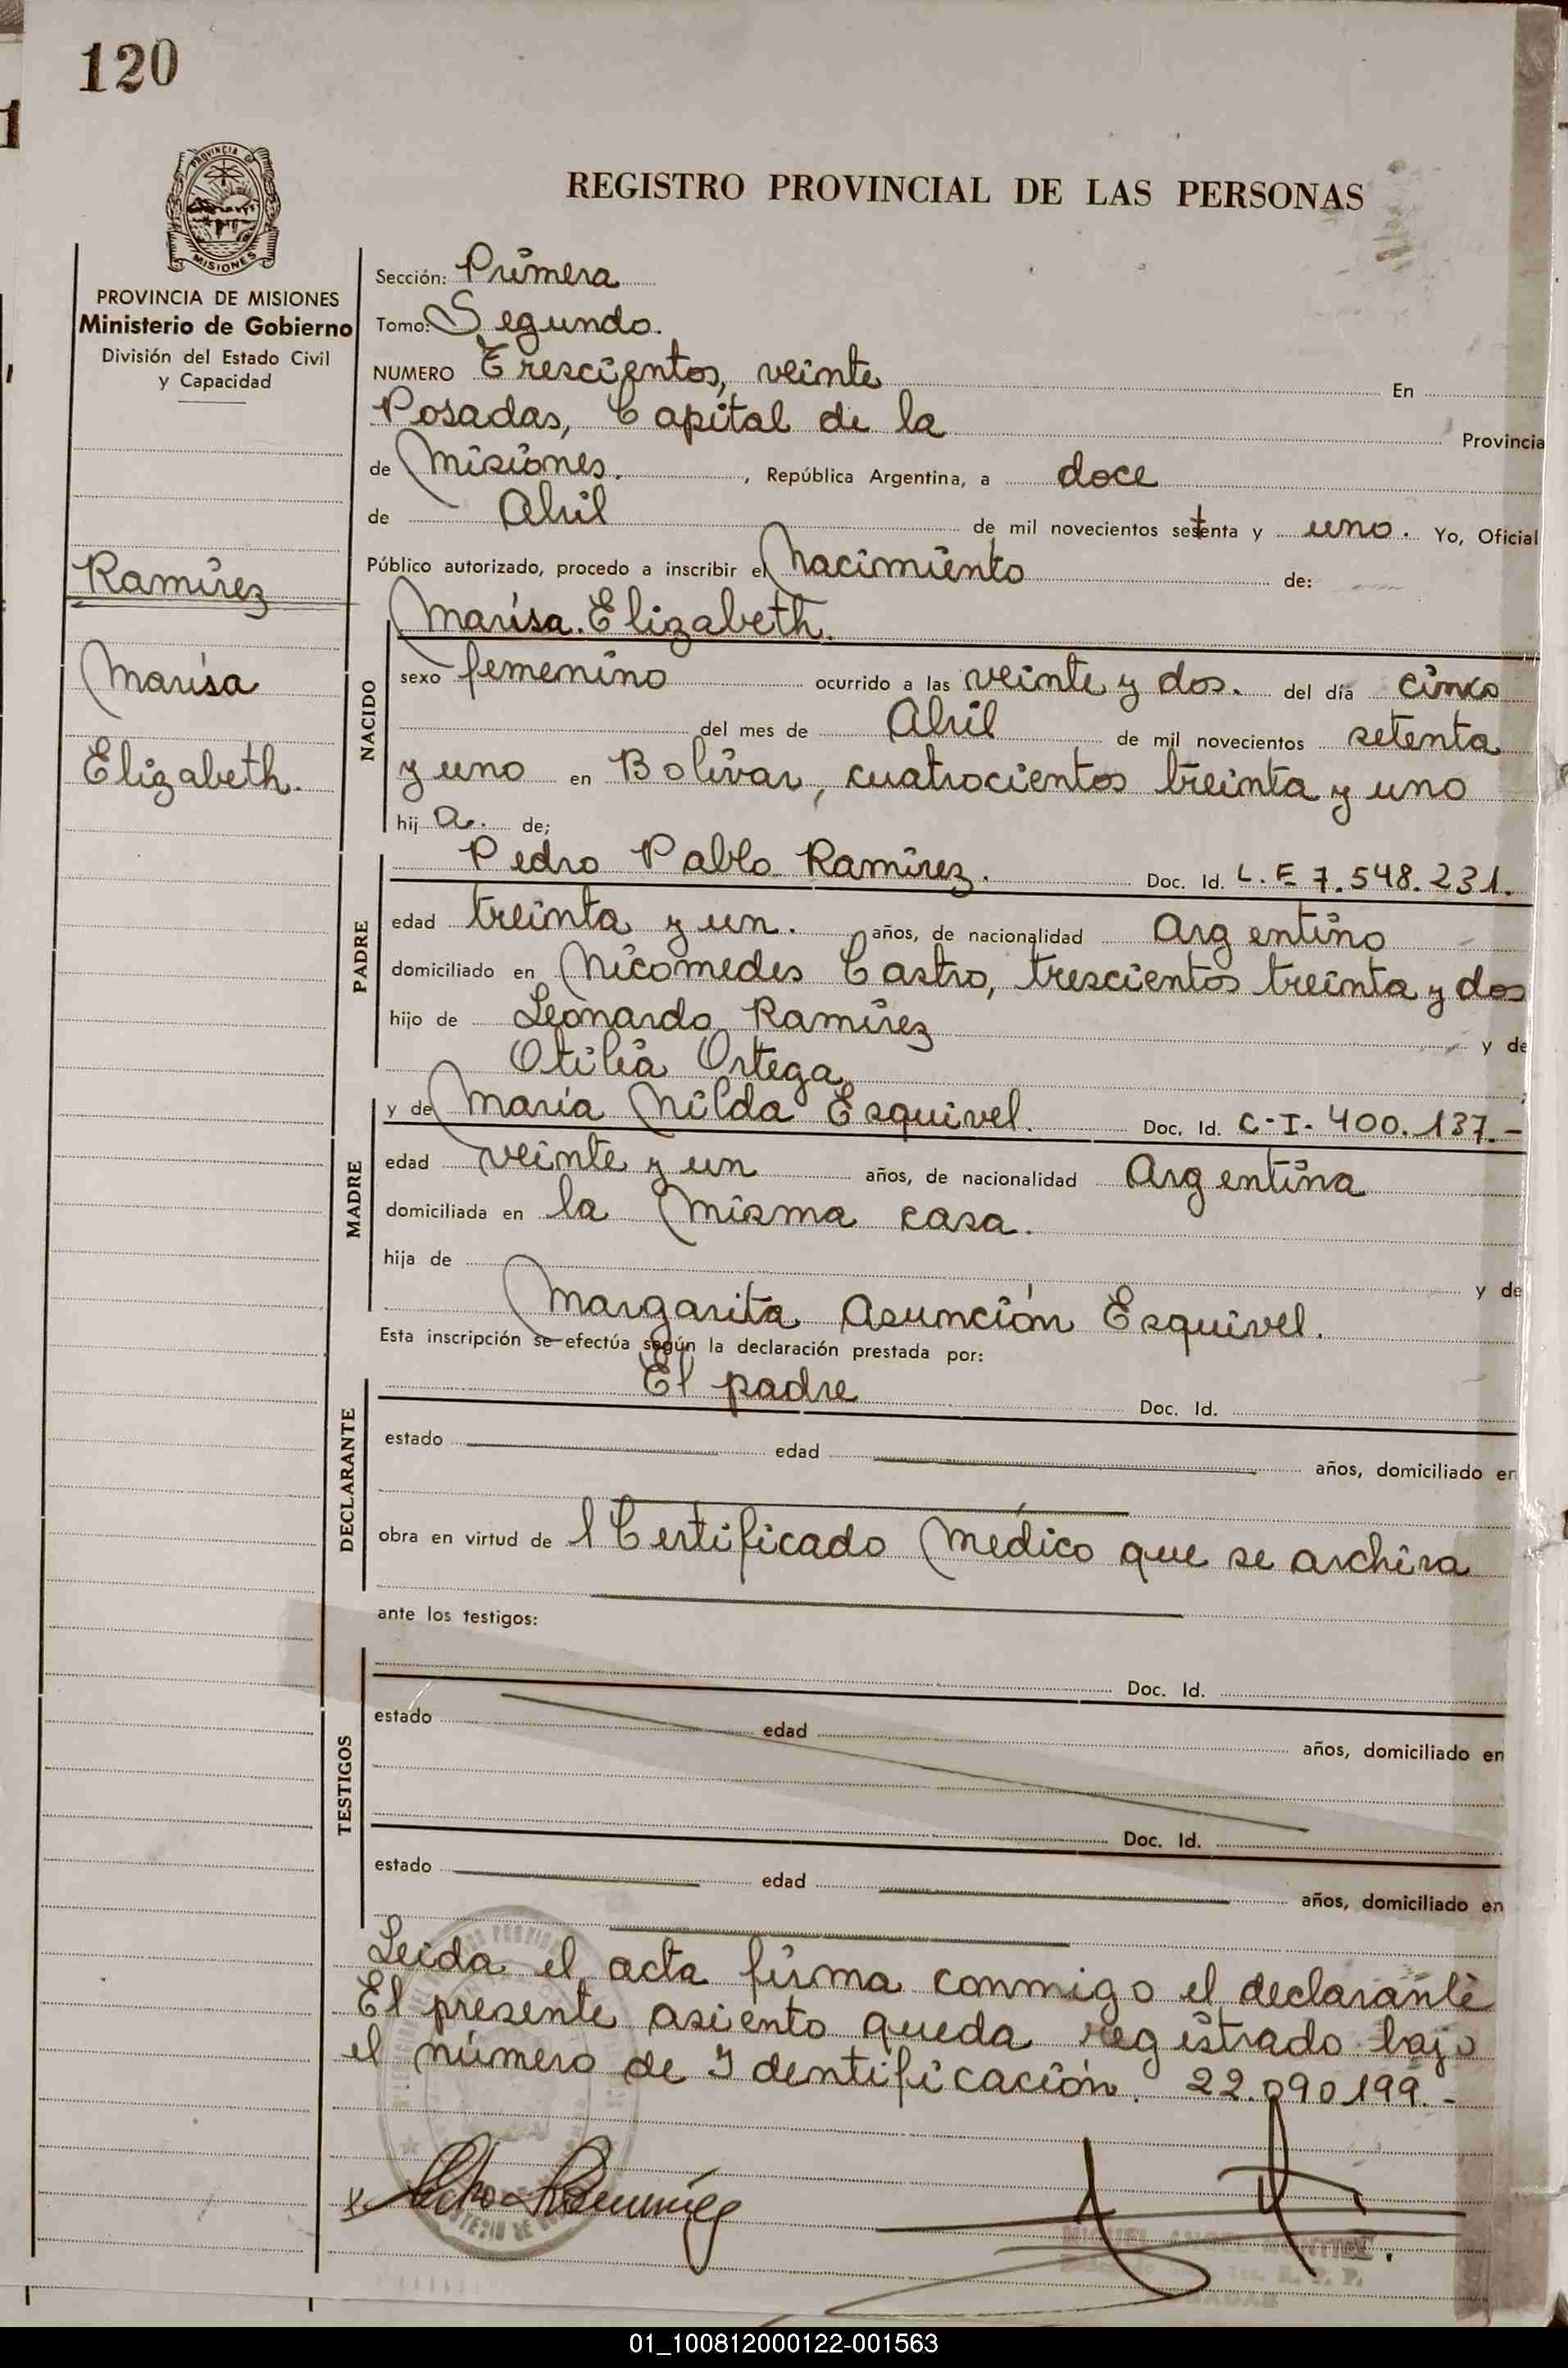 120
REGISTRO PROVINCIAL DE LAS PERSONAS
PROVINCIA DE MISIONES
PROVINCIA DE MISIONES
Ministerio de Gobierno
División del Estado Civil
y Capacidad
Ramírez
Marisa
Elizabeth.
Sección: Primera
Tomo: Segundo.
NUMERO Trescientos, veinte En
Posadas, Capital de la Provincia
de Misiones. , República Argentina, a doce
de Abril de mil novecientos setenta y uno. Yo, Oficial
Público autorizado, procedo a inscribir el Nacimiento de:
Marisa Elizabeth.
NACIDO
sexo femenino ocurrido a las veinte y dos. del día cinco
del mes de Abril de mil novecientos setenta
y uno en Bolívar, cuatrocientos treinta y uno
hij a. de;
PADRE
Pedro Pablo Ramírez. Doc. Id. L. E 7.548.231.
edad treinta y un. años, de nacionalidad Argentino
domiciliado en Nicomedes Castro, trescientos treinta y dos
hijo de Leonardo Ramírez y de
Otilia Ortega
MADRE
y de María Nilda Esquivel. Doc. Id. C-I- 400.137.-
edad veinte y un años, de nacionalidad Argentina
domiciliada en la misma casa.
hija de y de
Margarita Asunción Esquivel.
Esta inscripción se efectúa según la declaración prestada por:
DECLARANTE
El padre Doc. Id.
estado edad años, domiciliado en
obra en virtud de l Certificado Médico que se archiva
ante los testigos:
TESTIGOS
Doc. Id.
estado edad años, domiciliado en
Doc. Id.
estado edad años, domiciliado en
Leida el acta firma conmigo el declarante
El presente asiento queda registrado bajo
el número de Identificación. 22.090.199.-
MIGUEL ANGEL
R. P. P.
01_100812000122-001563